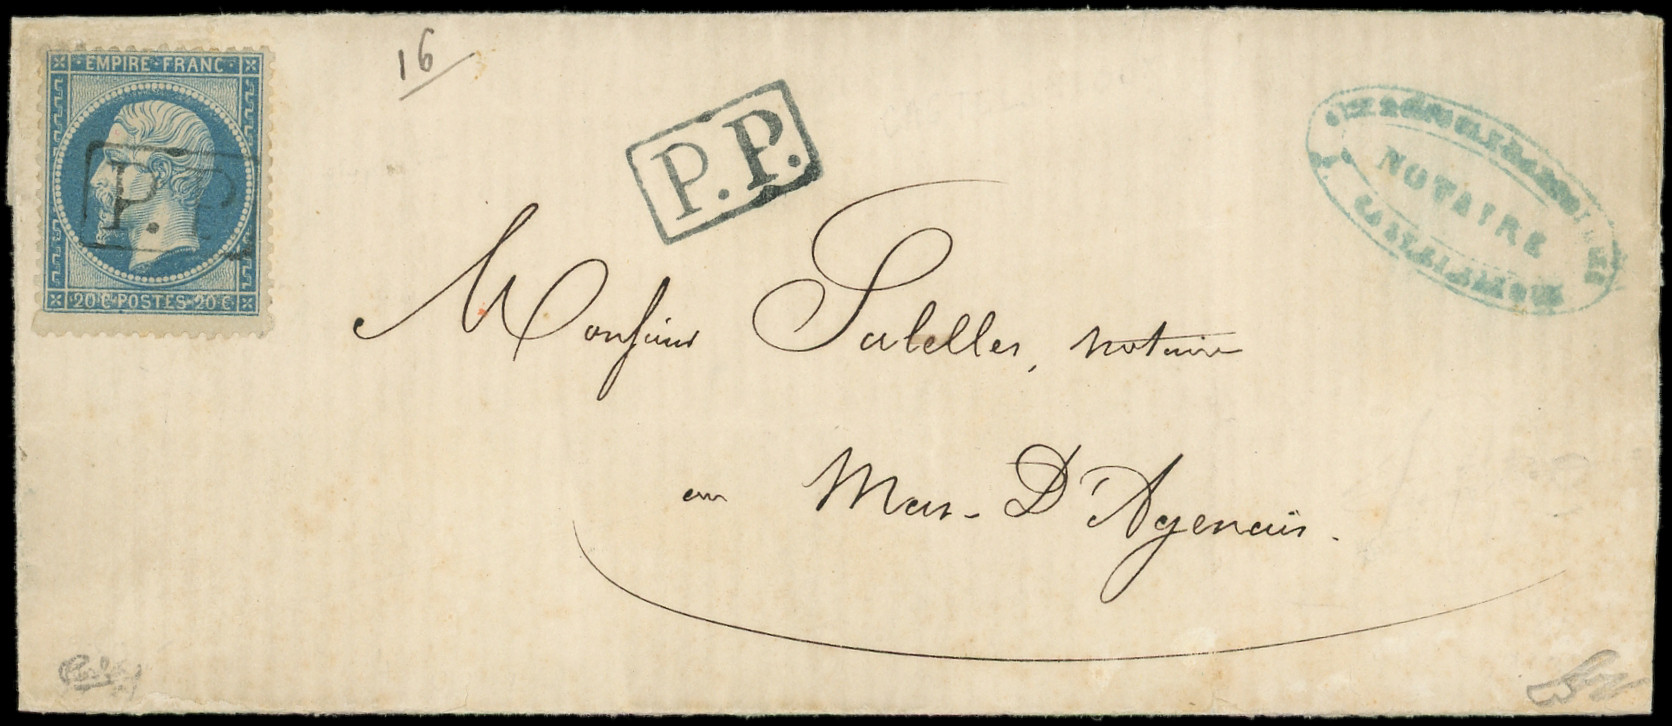 EMPIRE FRANC
P.P.
20 C POSTES 20 C
16
P.P.
NOTAIRE
Monsieur Salelles, notaire
au Mas-D'Agenais.